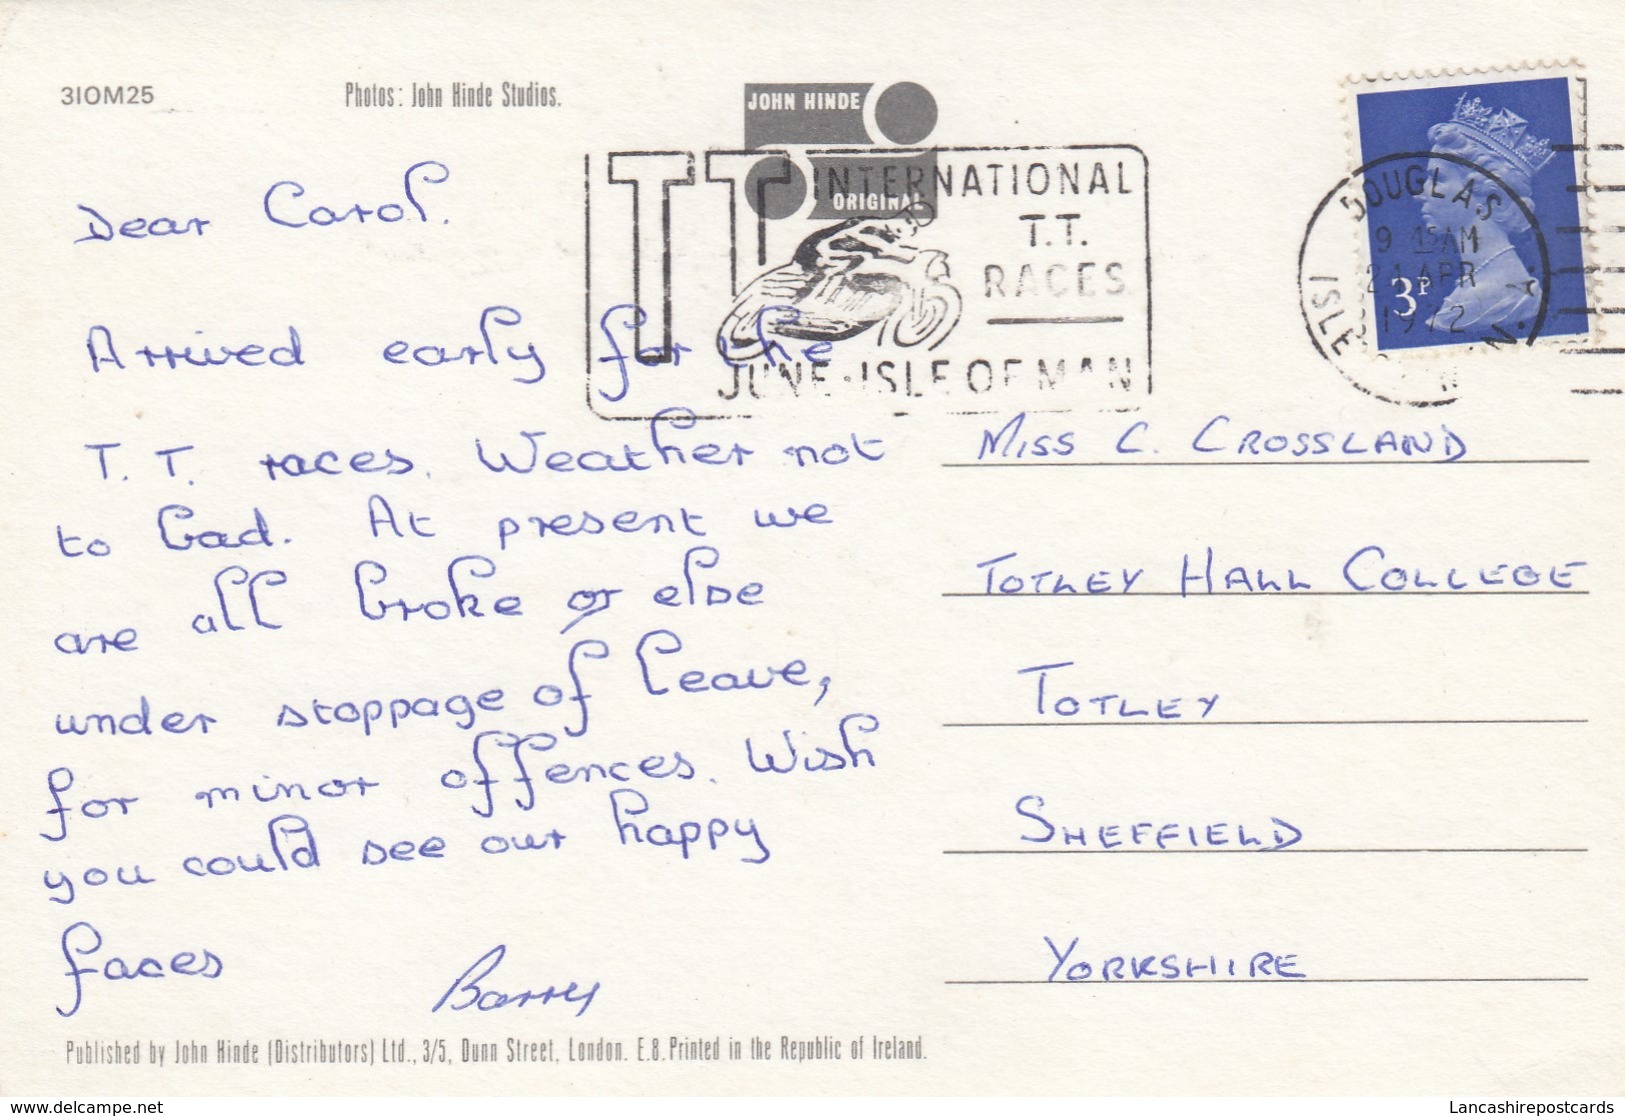 3IOM25
Photos: John Hinde Studios.
JOHN HINDE
ORIGINAL
TT INTERNATIONAL
T.T.
RACES
JUNE-ISLE OF MAN
DOUGLAS
9 15AM
APR
1972
ISLE
3P
Dear Carol.
Arrived early for the
T.T. races. Weather not
to bad. At present we
are all broke or else
under stoppage of leave,
for minor offences. Wish
you could see our happy
faces
Barry
MISS C. CROSSLAND
TOTLEY HALL COLLEGE
TOTLEY
SHEFFIELD
YORKSHIRE
Published by John Hinde (Distributors) Ltd., 3/5, Dunn Street, London. E.8. Printed in the Republic of Ireland.
www.delcampe.net
Lancashirepostcards